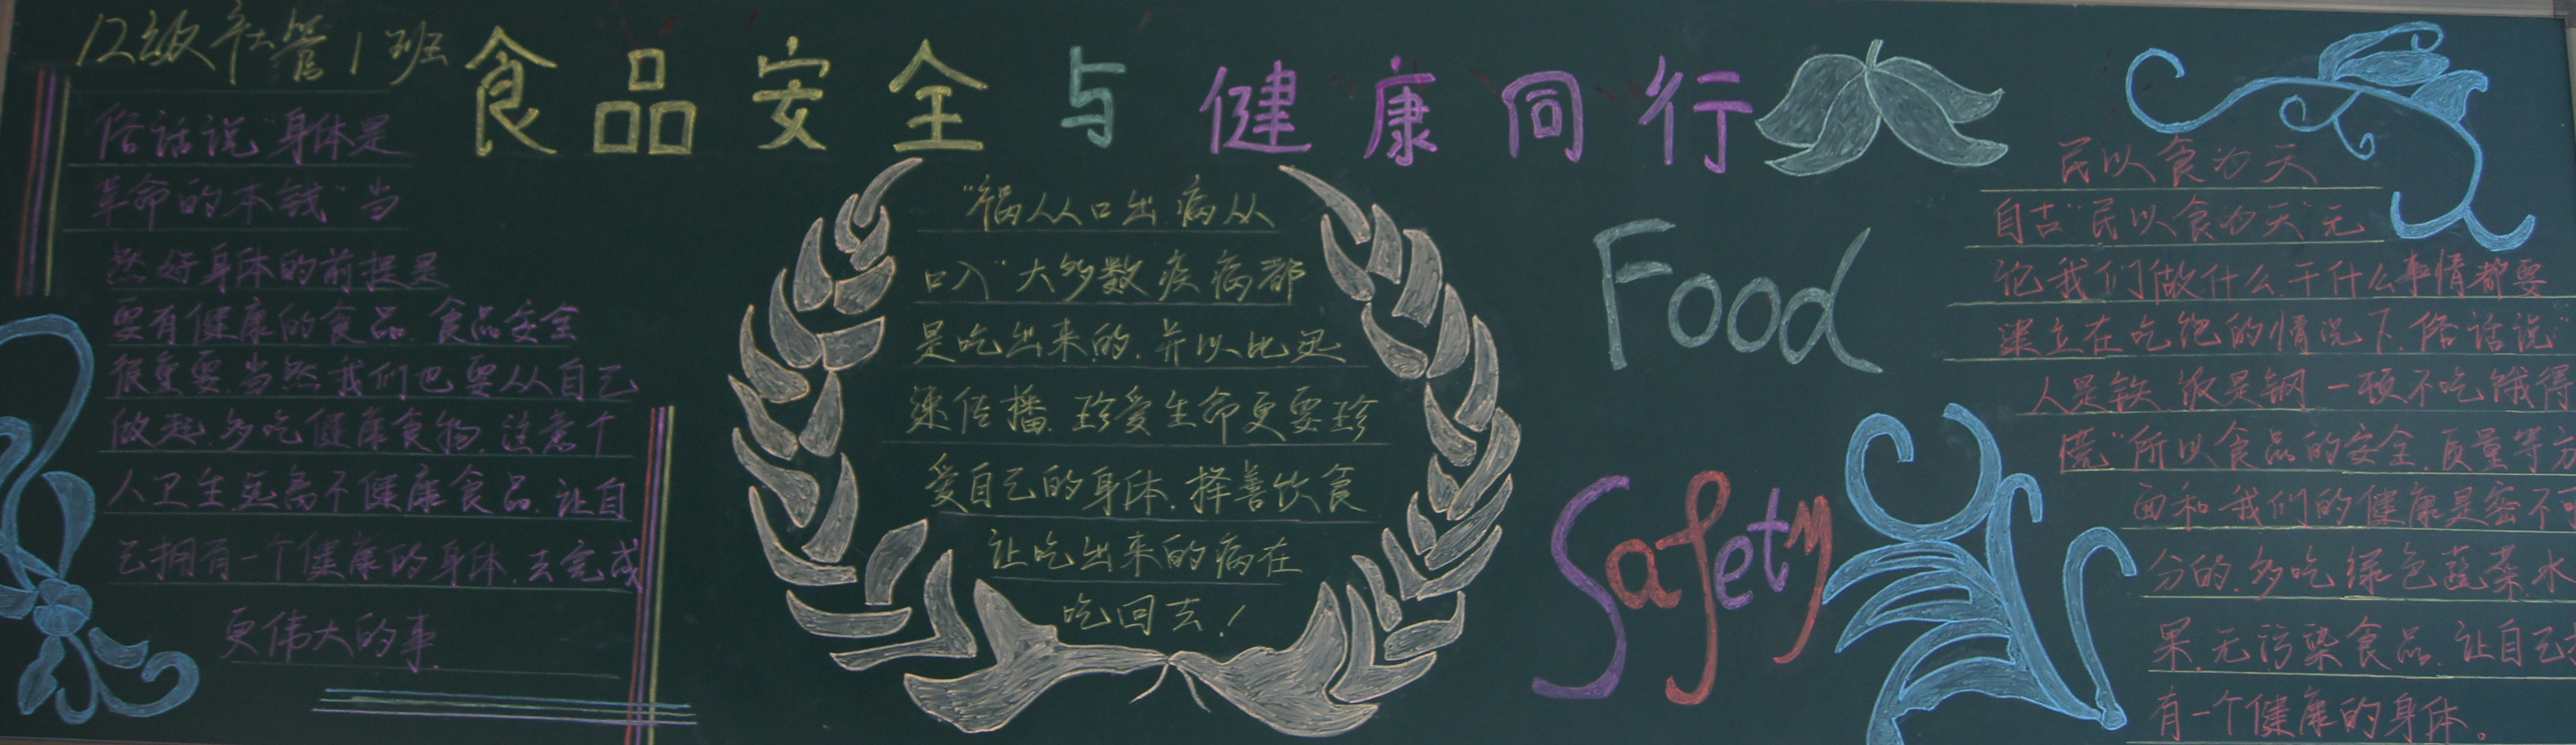 12级社管1班
食品安全与健康同行
俗话说"身体是
革命的本钱"当
然好身体的前提是
要有健康的食品.食品安全
很重要.当然我们也要从自己
做起.多吃健康食物.注意个
人卫生.远离不健康食品.让自
己拥有一个健康的身体.去完成
更伟大的事.
"祸从口出.病从
口入"大多数疾病都
是吃出来的.并以比迅
速传播.珍爱生命更要珍
爱自己的身体.择善饮食
让吃出来的病在
吃回去！
Food
Safety
民以食为天
自古"民以食为天"无
论我们做什么.干什么事情都要
建立在吃饱的情况下.俗话说
人是铁.饭是钢 一顿不吃饿得
慌"所以食品的安全.质量等方
面和我们的健康是密不可
分的.多吃绿色蔬菜.水
果.无污染食品.让自己
有一个健康的身体。